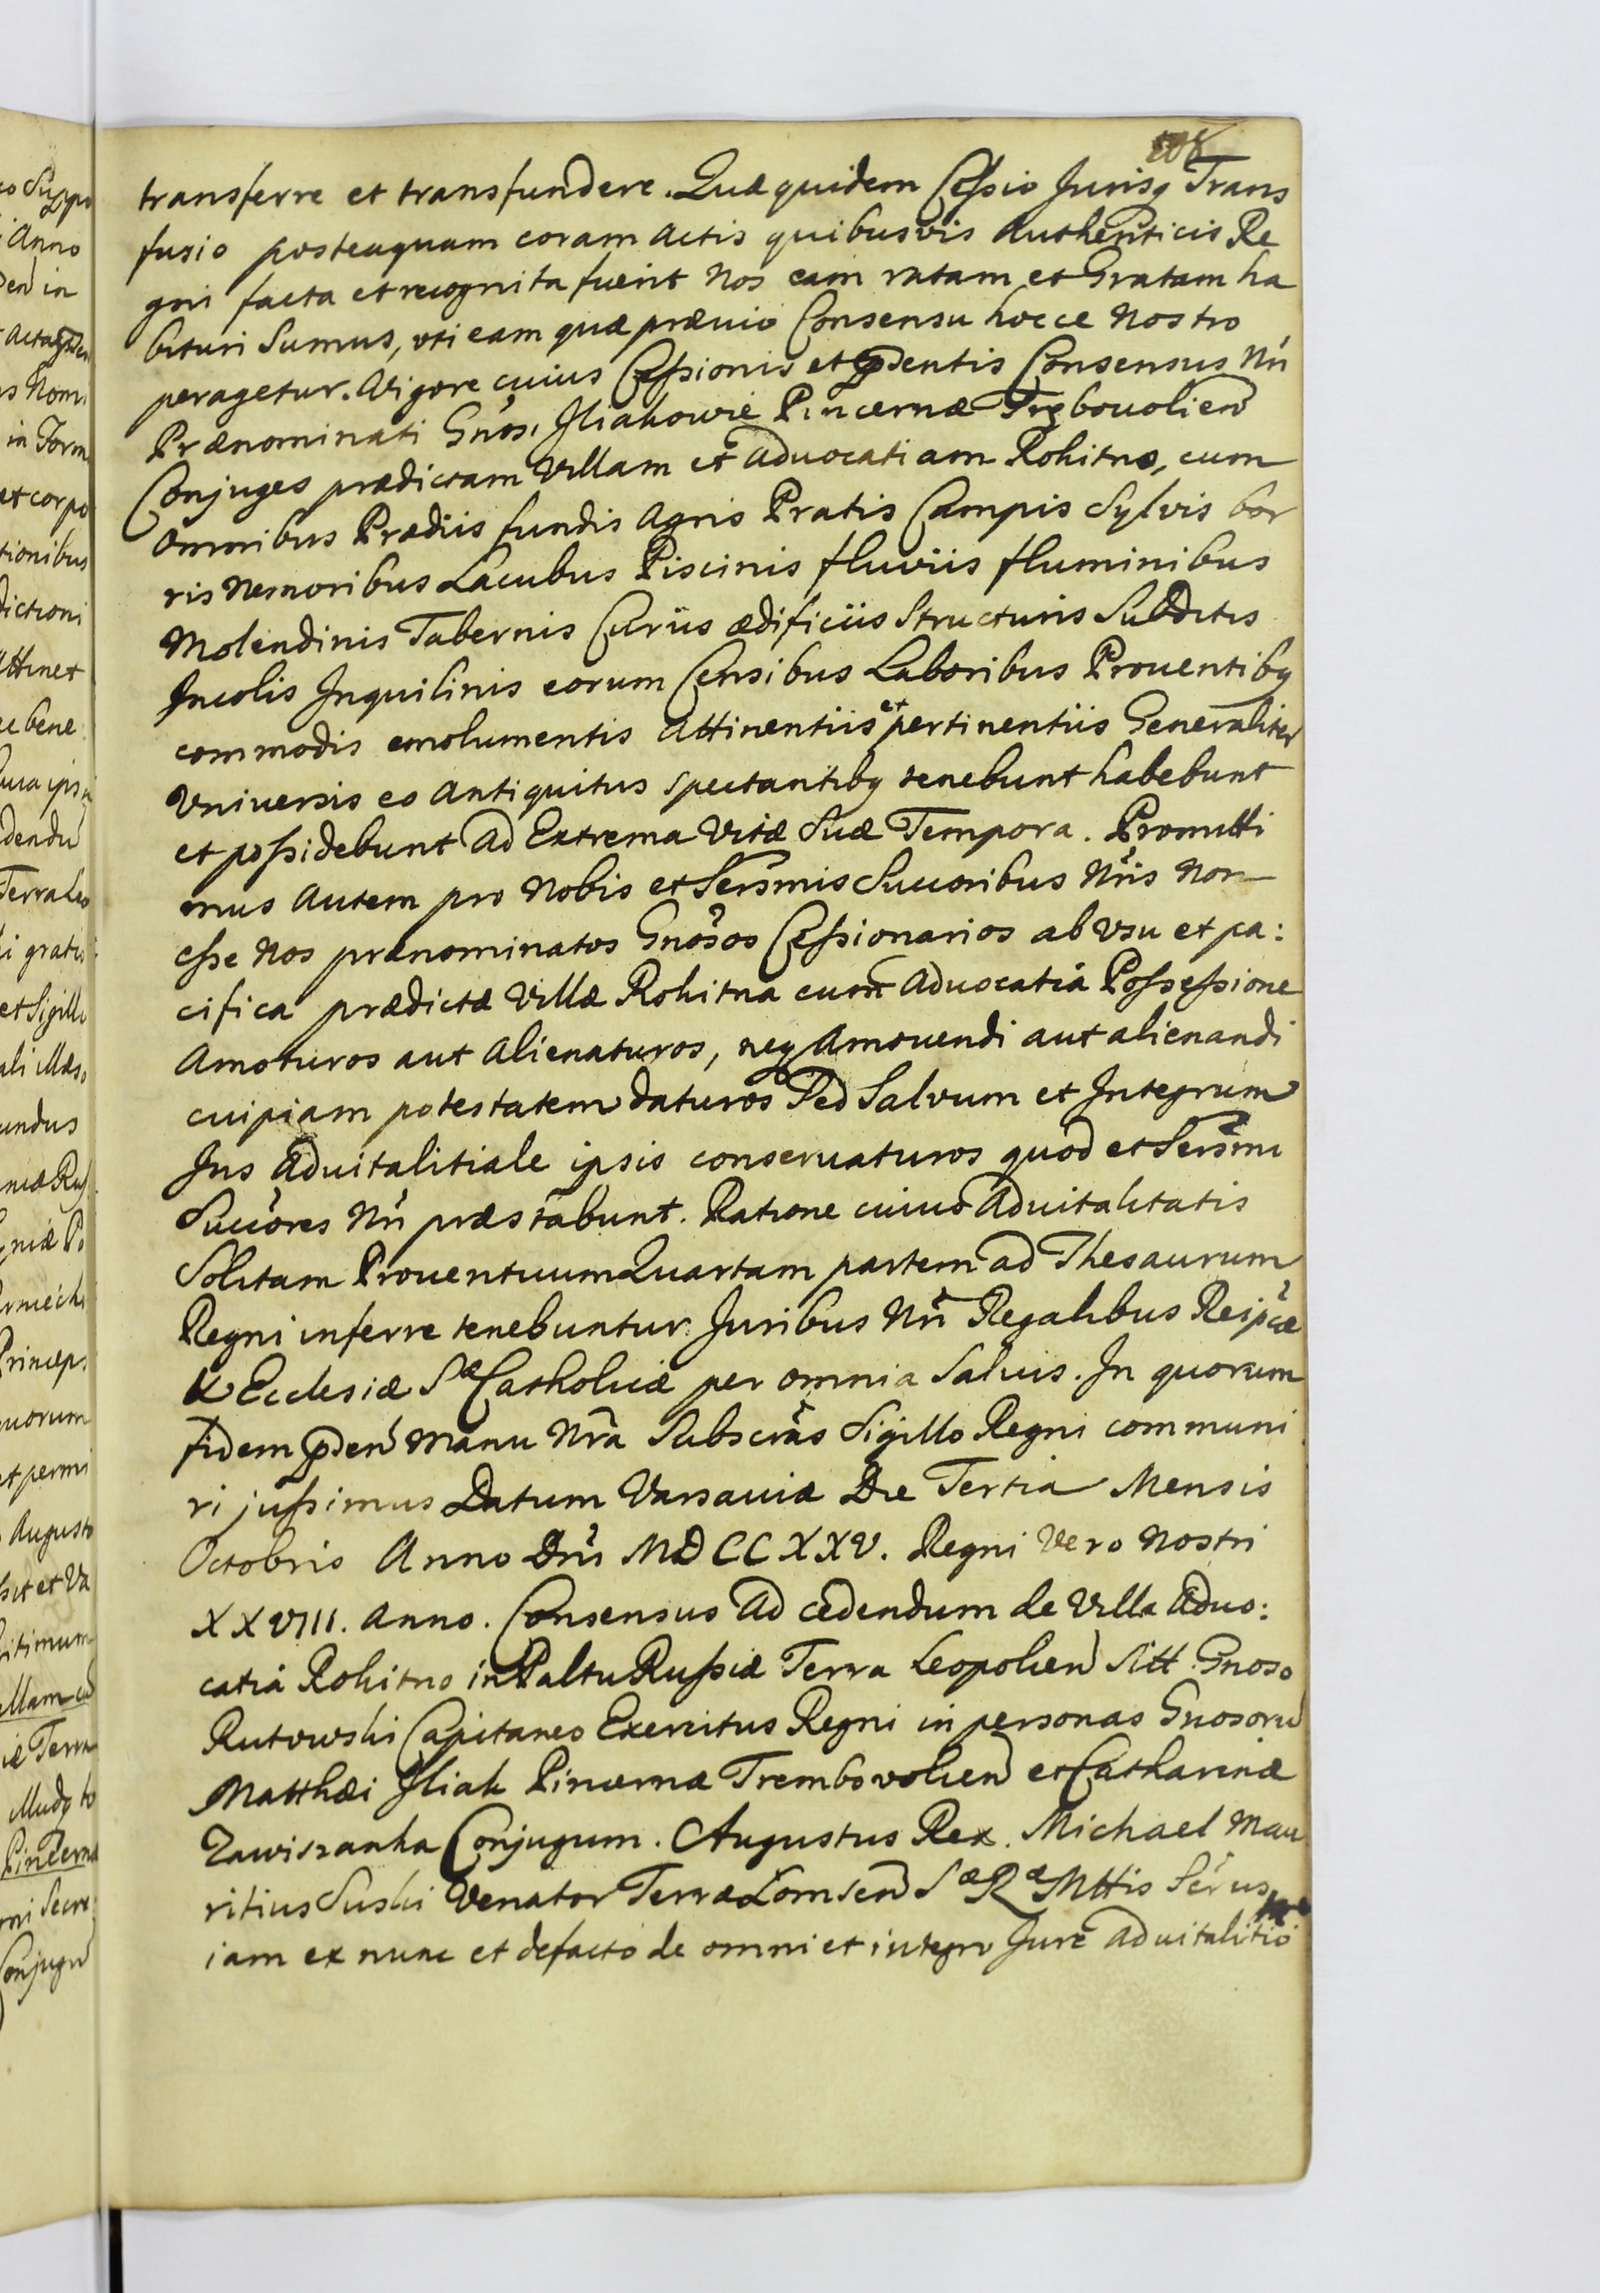 transferre et transfundere. Quæ quidem Cessio Jurisq Trans
fusio posteaquam coram Actis quibusvis Authenticis Re
gni facta et recognita fuerit Nos eam ratam et Gratam ha
bituri Sumus, vti eam quæ prævio Consensu hocce Nostro
peragetur. Vigore cuius Cessionis et pñdentis Consensus Nri
Prænominati Gnosi Iliakowie Pincernæ Trębouolien
Conjuges prædictam Villam et Aduocatiam Rohitno, cum
Omnibus Prædiis fundis Agris Pratis Campis Sylvis bor
ris Nemoribus Lacubus Piscinis fluviis fluminibus
Molendinis Tabernis Curiis ædificiis Structuris Subditis
Incolis Inquilinis eorum Censibus Laboribus Prouentibq
commodis emolumentis Attinentiis et pertinentiis Generaliter
Vniuersis eo Antiquitus spectantibq tenebunt habebunt
et possidebunt ad Extrema Vitæ Suæ Tempora. Promitti
mus Autem pro Nobis et Sersmis Succoribus Nris Non
esse Nos prænominatos Gnosos Cessionarios ab Vsu et pa:
cifica prædictæ Villæ Rohitna cum Aduocatia Possessione
Amoturos aut Alienaturos, neq Amouendi aut alienandi
cuipiam potestatem daturos Sed Salvum et Integrum
Jus Aduitalitiale ipsis conseruaturos quod et Sersmi
Succores Nri præstabunt. Ratione cuius Aduitalitatis
Solitam Prouentuum Quartam partem ad Thesaurum
Regni inferre tenebuntur. Juribus Nri Regalibus Reipcæ
& Ecclesiæ Sæ Catholicæ per omnia Saluis. In quorum
fidem pñden Manu Nra Subscras Sigillo Regni communi
ri jussimus Datum Varsauiæ Die Tertia Mensis
Octobris Anno Dni MDCCXXV. Regni Vero Nostri
XXVIII. Anno. Consensus Ad cedendum de Villa Aduo:
catia Rohitno in Paltu Russiæ Terra Leopolien Sitt. Gnoso
Rutowski Capitaneo Exercitus Regni in personas Gnosoru
Matthæi Iliak Pincernæ Trembowolien et Catharinæ
Zawiszanka Conjugum. Augustus Rex. Michael Mau
ritius Suski Venator Terræ Lomsen Sæ Ræ Mttis Sérus
iam ex nunc et defacto de omni et integro Jure Aduitalitio